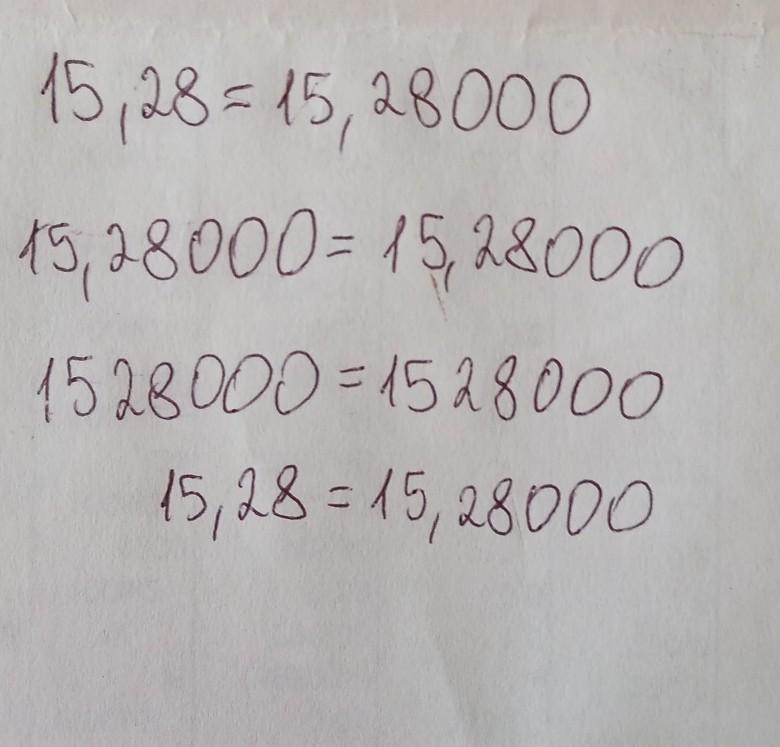 15,28 = 15,28000
15,28000 = 15,28000
1528000 = 1528000
15,28 = 15,28000